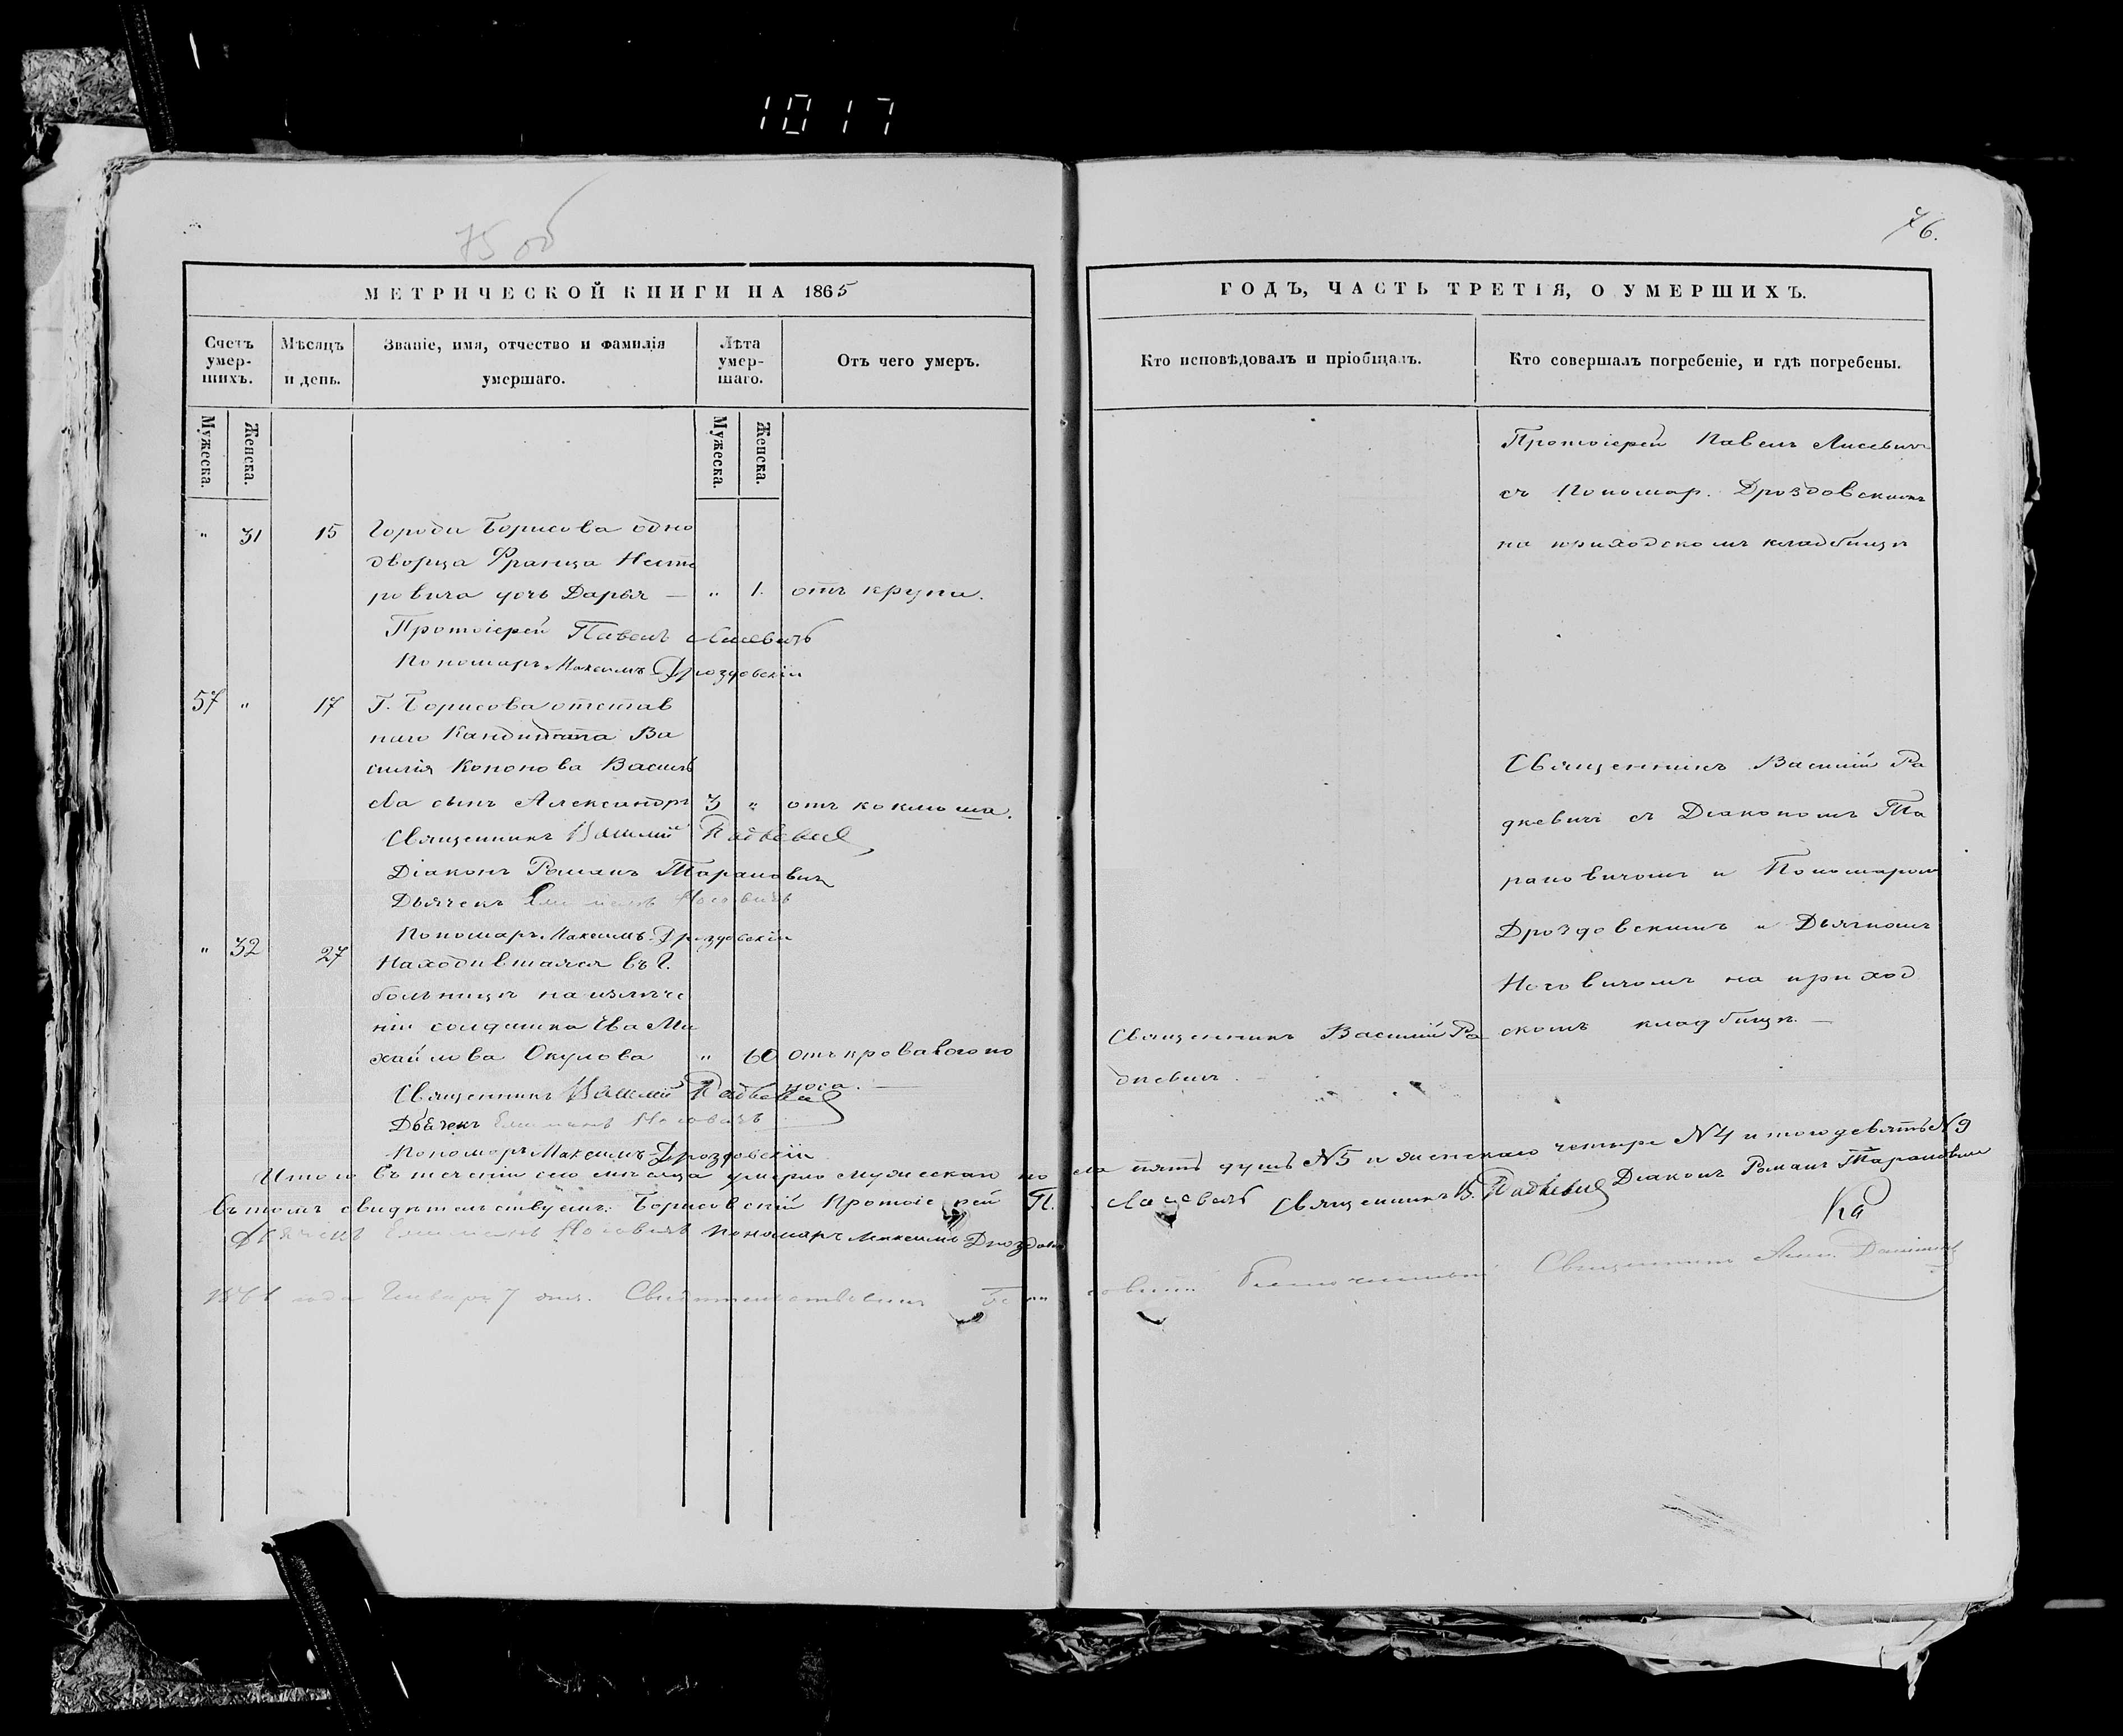 1017
75 об
76.
МЕТРИЧЕСКОЙ КНИГИ НА 1865
ГОДЪ, ЧАСТЬ ТРЕТІЯ, О УМЕРШИХЪ.
Счетъ умер-шихъ.
Мѣсяцъ и день.
Званіе, имя, отчество и фамилія умершаго.
Лѣта умер-шаго.
Отъ чего умеръ.
Кто исповѣдовалъ и пріобщалъ.
Кто совершалъ погребеніе, и гдѣ погребены.
Мужеска.
Женска.
Мужеска.
Женска.
" 31 15 Города Борисова одно
дворца Франца Нест
ровича дочь Дарья — " 1. отъ крупа.
Протоіерей Павелъ Лисевичъ
Пономарь Максимъ Дроздовскій
Протоіерей Павелъ Лисевичъ
съ Пономар. Дроздовскимъ
на приходскомъ кладбищѣ
57 " 17 Г. Борисова отстав
наго Кандидата Ва
силія Кононова Василь
ева сынъ Александръ 3 " отъ коклюша.
Священникъ Василій Радкевич
Діаконъ Романъ Тарановичъ
Дьячекъ Носовичъ
Пономарь Максимъ Дроздовскій
Священникъ Василій Ра
дкевичъ съ Діакономъ Та
рановичомъ и Пономаром
Дроздовскимъ и Дьячкомъ
Носовичомъ на приход
скомъ кладбищѣ. —
" 32 27 Находившаяся въ Г.
больницѣ на излече
ніи солдатка Ева Ми
хайлова Окулова " 60 отъ кроваваго по
носа. —
Священникъ Василій Радкевич
Дьячекъ Носовичъ
Пономарь Максимъ Дроздовскій
Священникъ Василій Ра
дкевичъ.
Итого въ теченіи сего мѣсяца умерло мужескаго по ла пять душъ №5 и женскаго четыре №4 итого девять №9
Въ томъ свидѣтельствуемъ: Борисовскій Протоіерей П. Лисевичъ Священникъ В. Радкевич Діаконъ Романъ Тарановичъ
Дьячекъ Носовичъ Пономарь Максимъ Дроздов
года Января 7 дня. Свидѣтельствовалъ Благочинный Священникъ